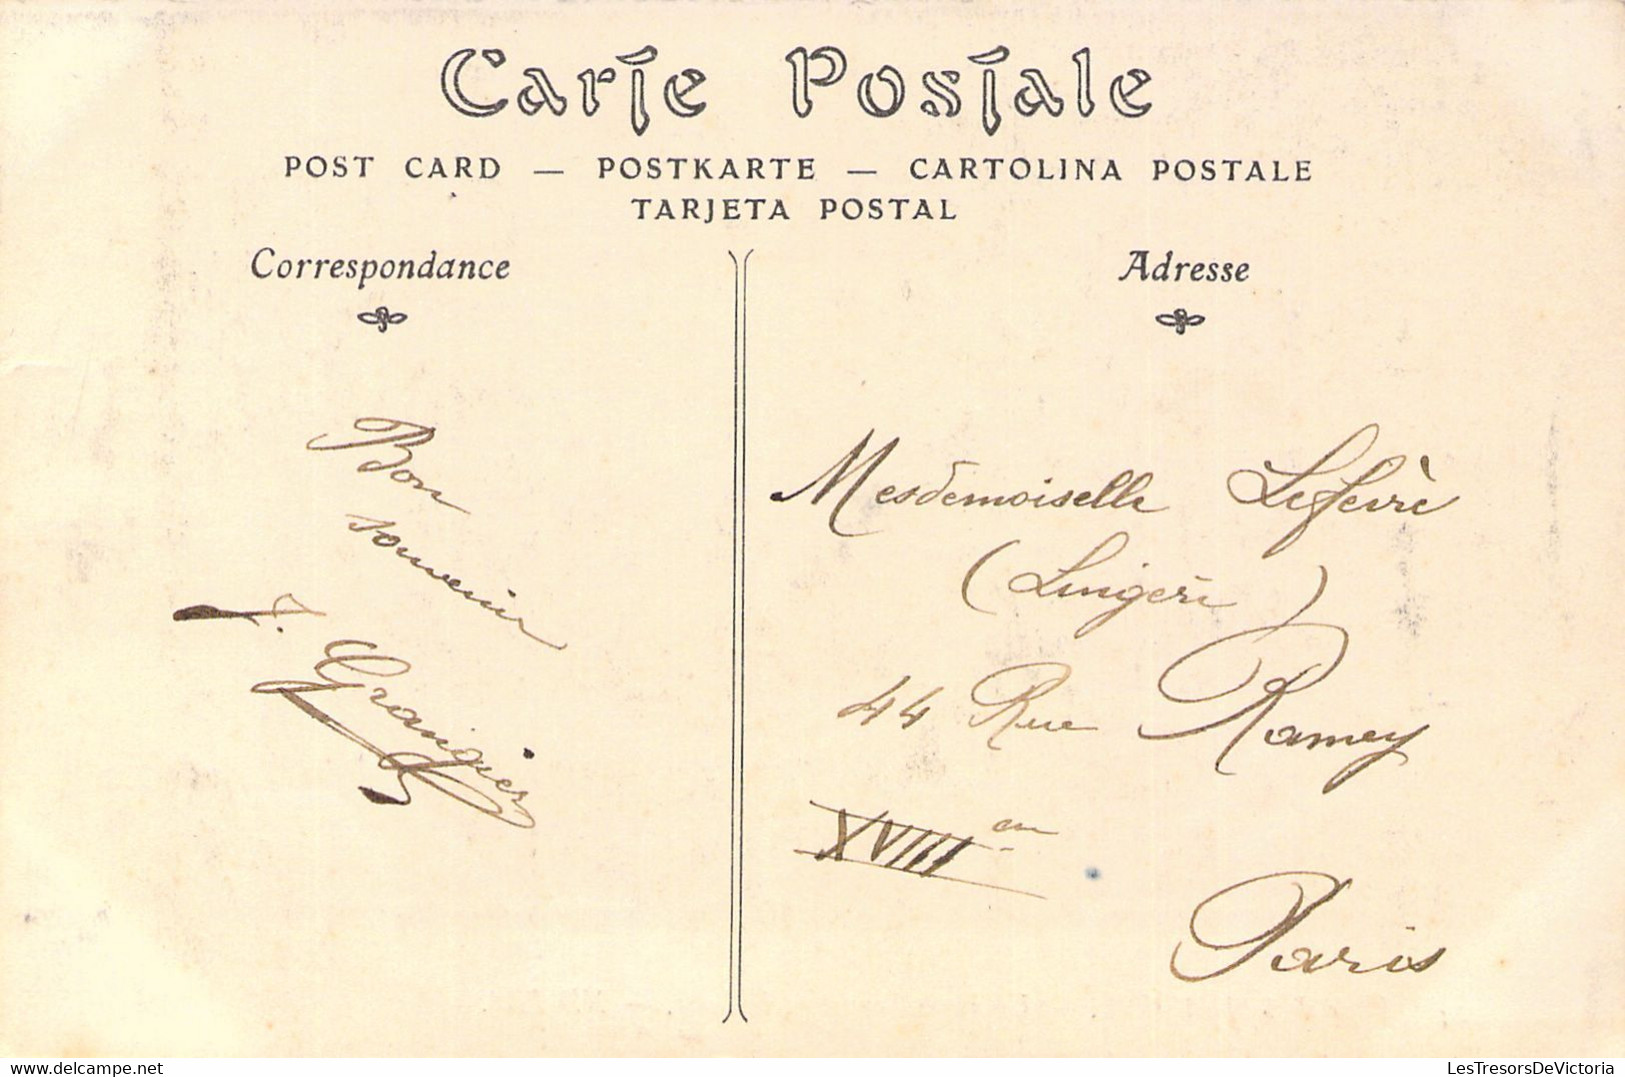 Carte Postale
POST CARD — POSTKARTE — CARTOLINA POSTALE
TARJETA POSTAL
Correspondance
Adresse
Bon
souvenir
J. Grangier
Mesdemoiselle Lefevre
(Lingerie)
44 Rue Ramey
XVIII em
Paris
LesTresorsDeVictoria